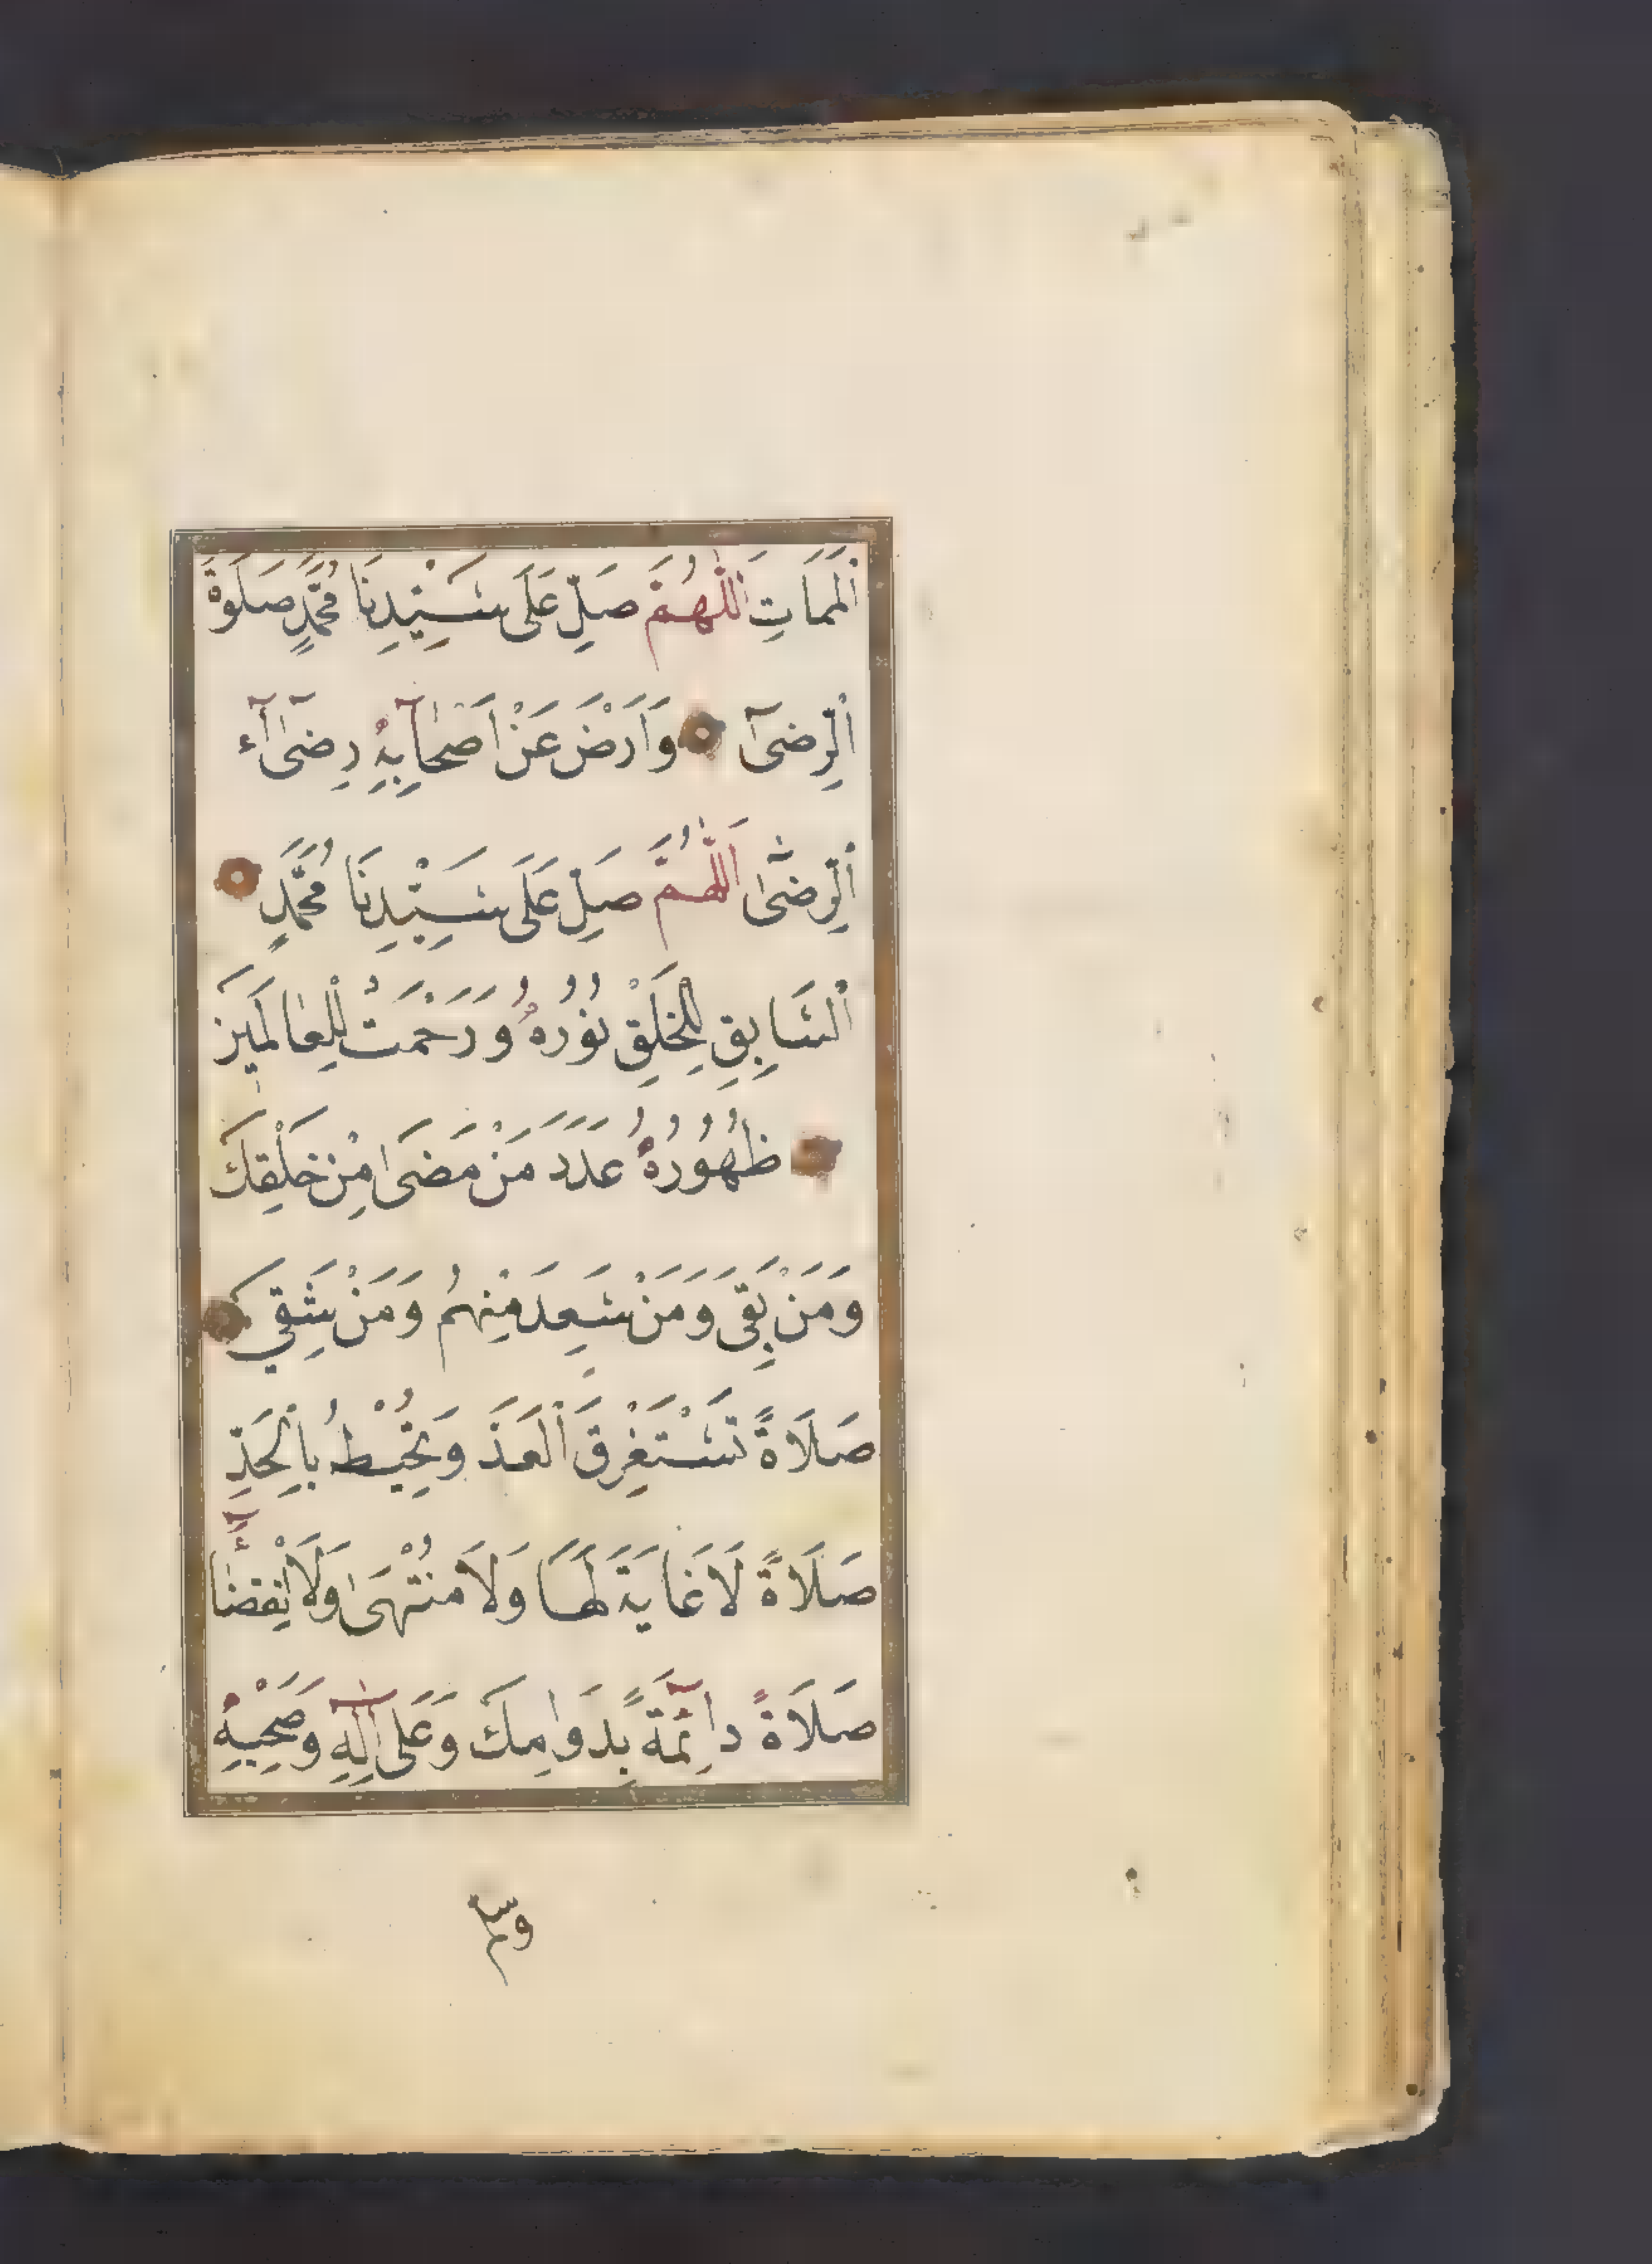 اَلْمَمَاتِ اَللّٰهُمَّ صَلِّ عَلَى سَيِّدِنَا مُحَمَّدٍ صَلَوةَ
اَلرِّضَىٓ وَارْضَ عَنْ اَصْحَابِهِ رِضَىٰٓاءَ
اَلرِّضَىٰ اَللّٰهُمَّ صَلِّ عَلَى سَيِّدِنَا مُحَمَّدٍ
اَلسَّابِقِ لِلْخَلْقِ نُوْرُهُ وَرَحْمَتْ لِلْعَالَمِيْنَ
ظُهُوْرُهُ عَدَدَ مَنْ مَضَىٰ مِنْ خَلْقِكَ
وَمَنْ بَقِىَ وَمَنْ سَعِدَ مِنْهُمْ وَمَنْ شَقِيَ
صَلَاةً تَسْتَغْرِقَ اَلْعَدَّ وَتُحِيْطُ بِالْحَدِّ
صَلَاةً لَا غَايَةَ لَهَا وَلَا مُنْتَهَىٰ وَلَا انْقِضَآءَ
صَلَاةً دَائِمَةً بِدَوَامِكَ وَعَلَى اٰلِهِ وَصَحْبِهِ
وسلم